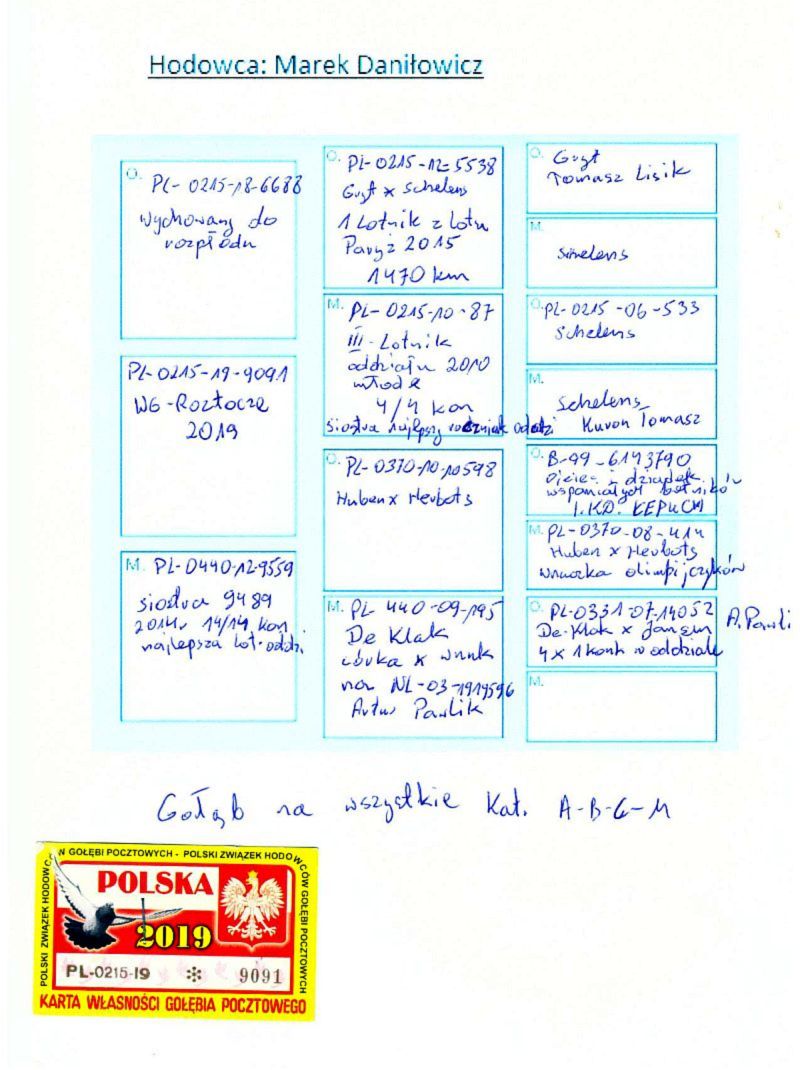 Hodowca: Marek Daniłowicz
O. PL-0215-18-6688
Wychowany do
rozpłodu
PL-0215-19-9091
WG-Roztocze
2019
M. PL-0440-12-9559
siostra 9489
2014r 14/14 kon
najlepsza lot-oddzi.
O. PL-0215-12-5538
Guyt x Schelens
1 Lotnik z lotu
Paryż 2015
1470 km
M. PL-0215-10-87
III-Lotnik
oddziału 2010
młode
4/4 kon
siostra najlepszy roczniak oddzi
O. PL-0370-10-10598
Huben x Herbots
M. PL-440-09-195
De Klak
córka x wnuk
na NL-03-1919596
Artur Pawlik
O. Guyt
Tomasz Lisik
M.
Schelens
O. PL-0215-06-533
Schelens
M.
Schelens
Kuron Tomasz
O. B-99-6143790
Ojciec - dziadek
wspaniałych lotników
I.KD.
M. PL-0370-08-414
Huben x Herbots
wnuczka olimpijczyków
O. PL-0331-07-14052 A. Pawli
De-Klak x Jansen
4 x 1 konk w oddziale
M.
Gołąb na wszystkie Kat. A-B-C-M
POLSKI ZWIĄZEK HODOWCÓW GOŁĘBI POCZTOWYCH - POLSKI ZWIĄZEK HODOWCÓW GOŁĘBI POCZTOWYCH
POLSKA
2019
PL-0215-19 9091
KARTA WŁASNOŚCI GOŁĘBIA POCZTOWEGO